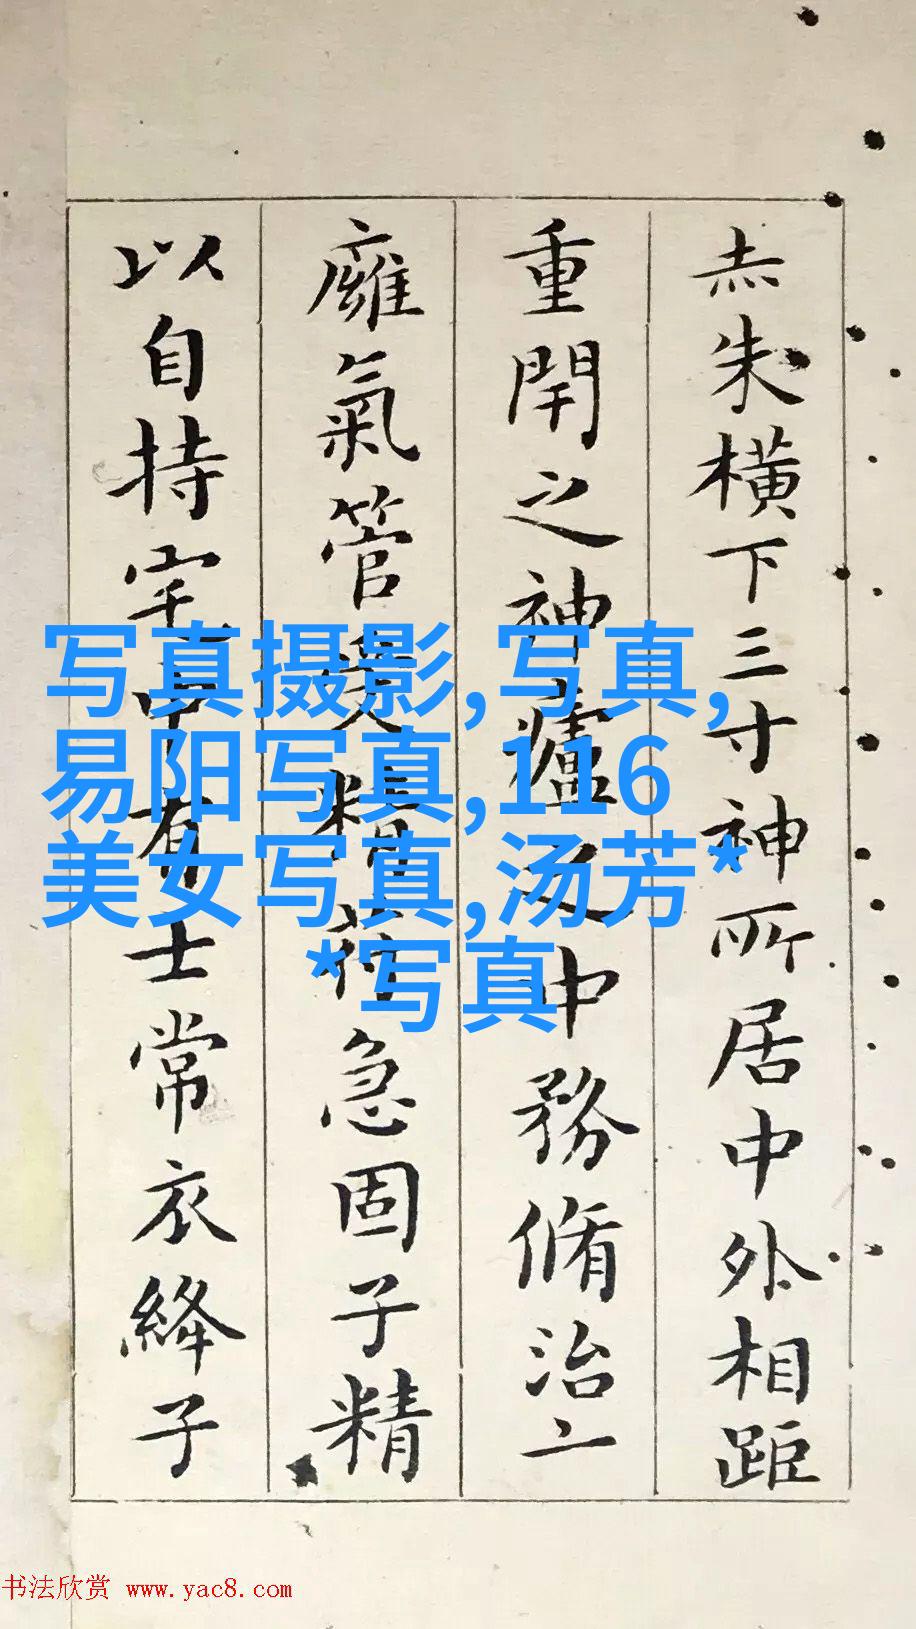 赤朱橫下三寸神所居中外相距
重閇之神廬之中務脩治
癰氣管受精符急固子精
以自持宅中有士常衣絳子
写真摄影,写真,
易阳写真,116
美女写真,汤芳*
*写真
书法欣赏 www.yac8.com